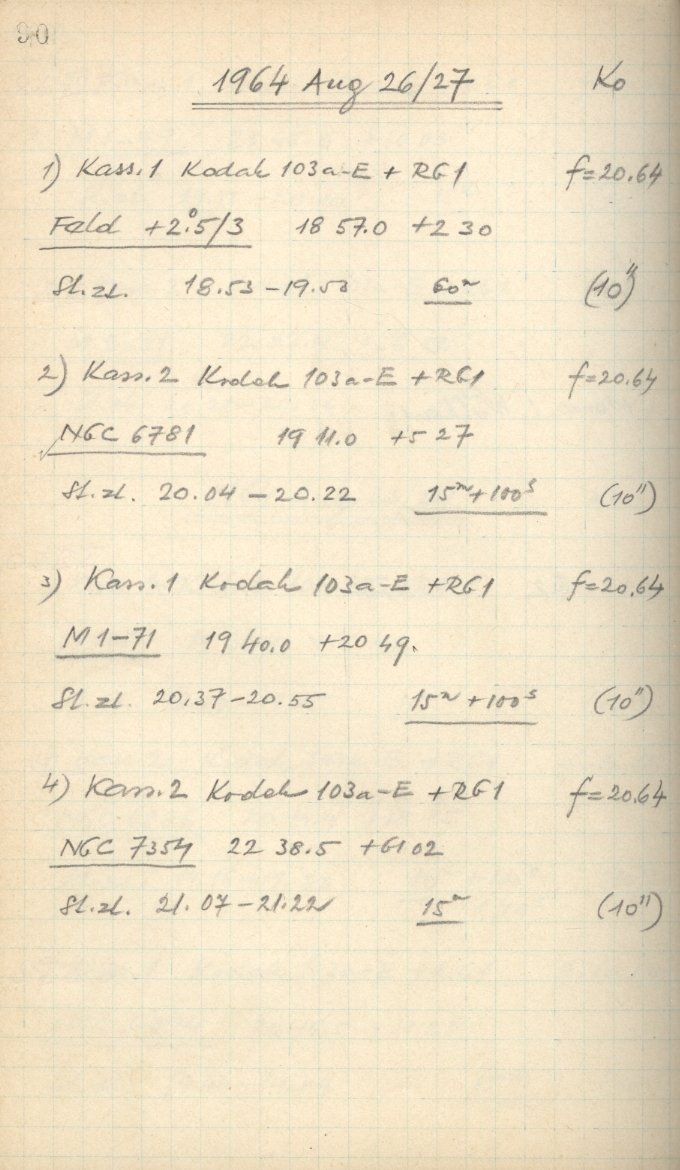 90
1964 Aug 26/27 Ko
1) Kass.1 Kodak 103a-E + RG1 f=20.64
Feld +2°.5/3 18 57.0 +2 30
St.zt. 18.53-19.53 60ᵐ (10")
2) Kass.2 Kodak 103a-E + RG1 f=20.64
NGC 6781 19 11.0 +5 27
St.zt. 20.04-20.22 15ᵐ+100ˢ (10")
3) Kass.1 Kodak 103a-E +RG1 f=20.64
M 1-71 19 40.0 +20 49.
St.zt. 20.37-20.55 15ᵐ+100ˢ (10")
4) Kass.2 Kodak 103a-E +RG1 f=20.64
NGC 7354 22 38.5 +61 02
St.zt. 21.07-21.22 15ᵐ (10")